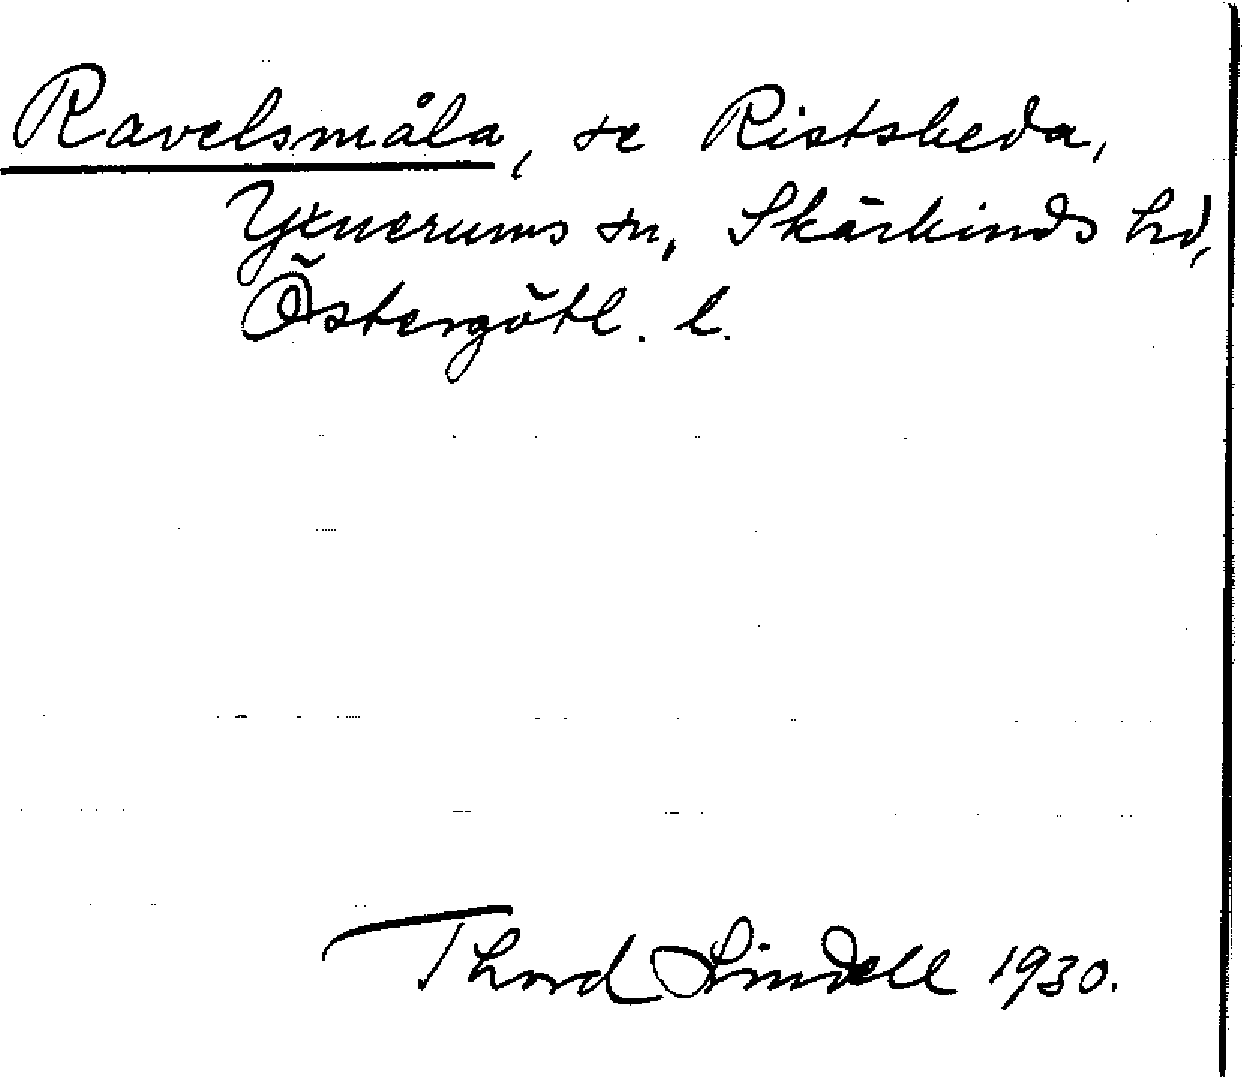 Ravelsmåla, se Ristsheda,
Yxnerums sn, Skärkinds hd,
Östergötl. l.
Thord Lindell 1930.